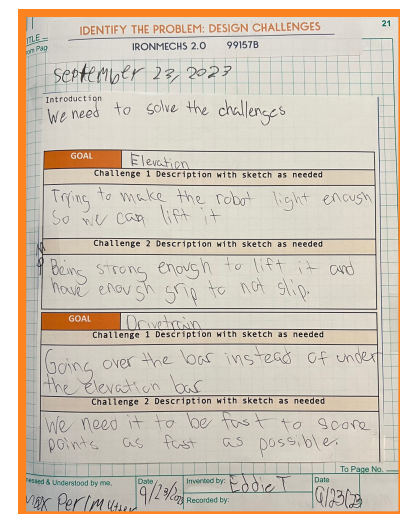 IDENTIFY THE PROBLEM: DESIGN CHALLENGES
21
TITLE
From Pag
IRONMECHS 2.0 99157B
September 23, 2023
Introduction
We need to solve the challenges
GOAL Elevation
Challenge 1 Description with sketch as needed
Trying to make the robot light enough
so we can lift it
Challenge 2 Description with sketch as needed
Being strong enough to lift it and
have enough grip to not slip.
GOAL Drivetrain
Challenge 1 Description with sketch as needed
Going over the bar instead of under
the elevation bar
Challenge 2 Description with sketch as needed
We need it to be fast to score
points as fast as possible.
To Page No.
nessed & Understood by me,
Date
Invented by: Eddie T
Date
Max Perlmutter
9/23/2023
Recorded by:
9/23/23